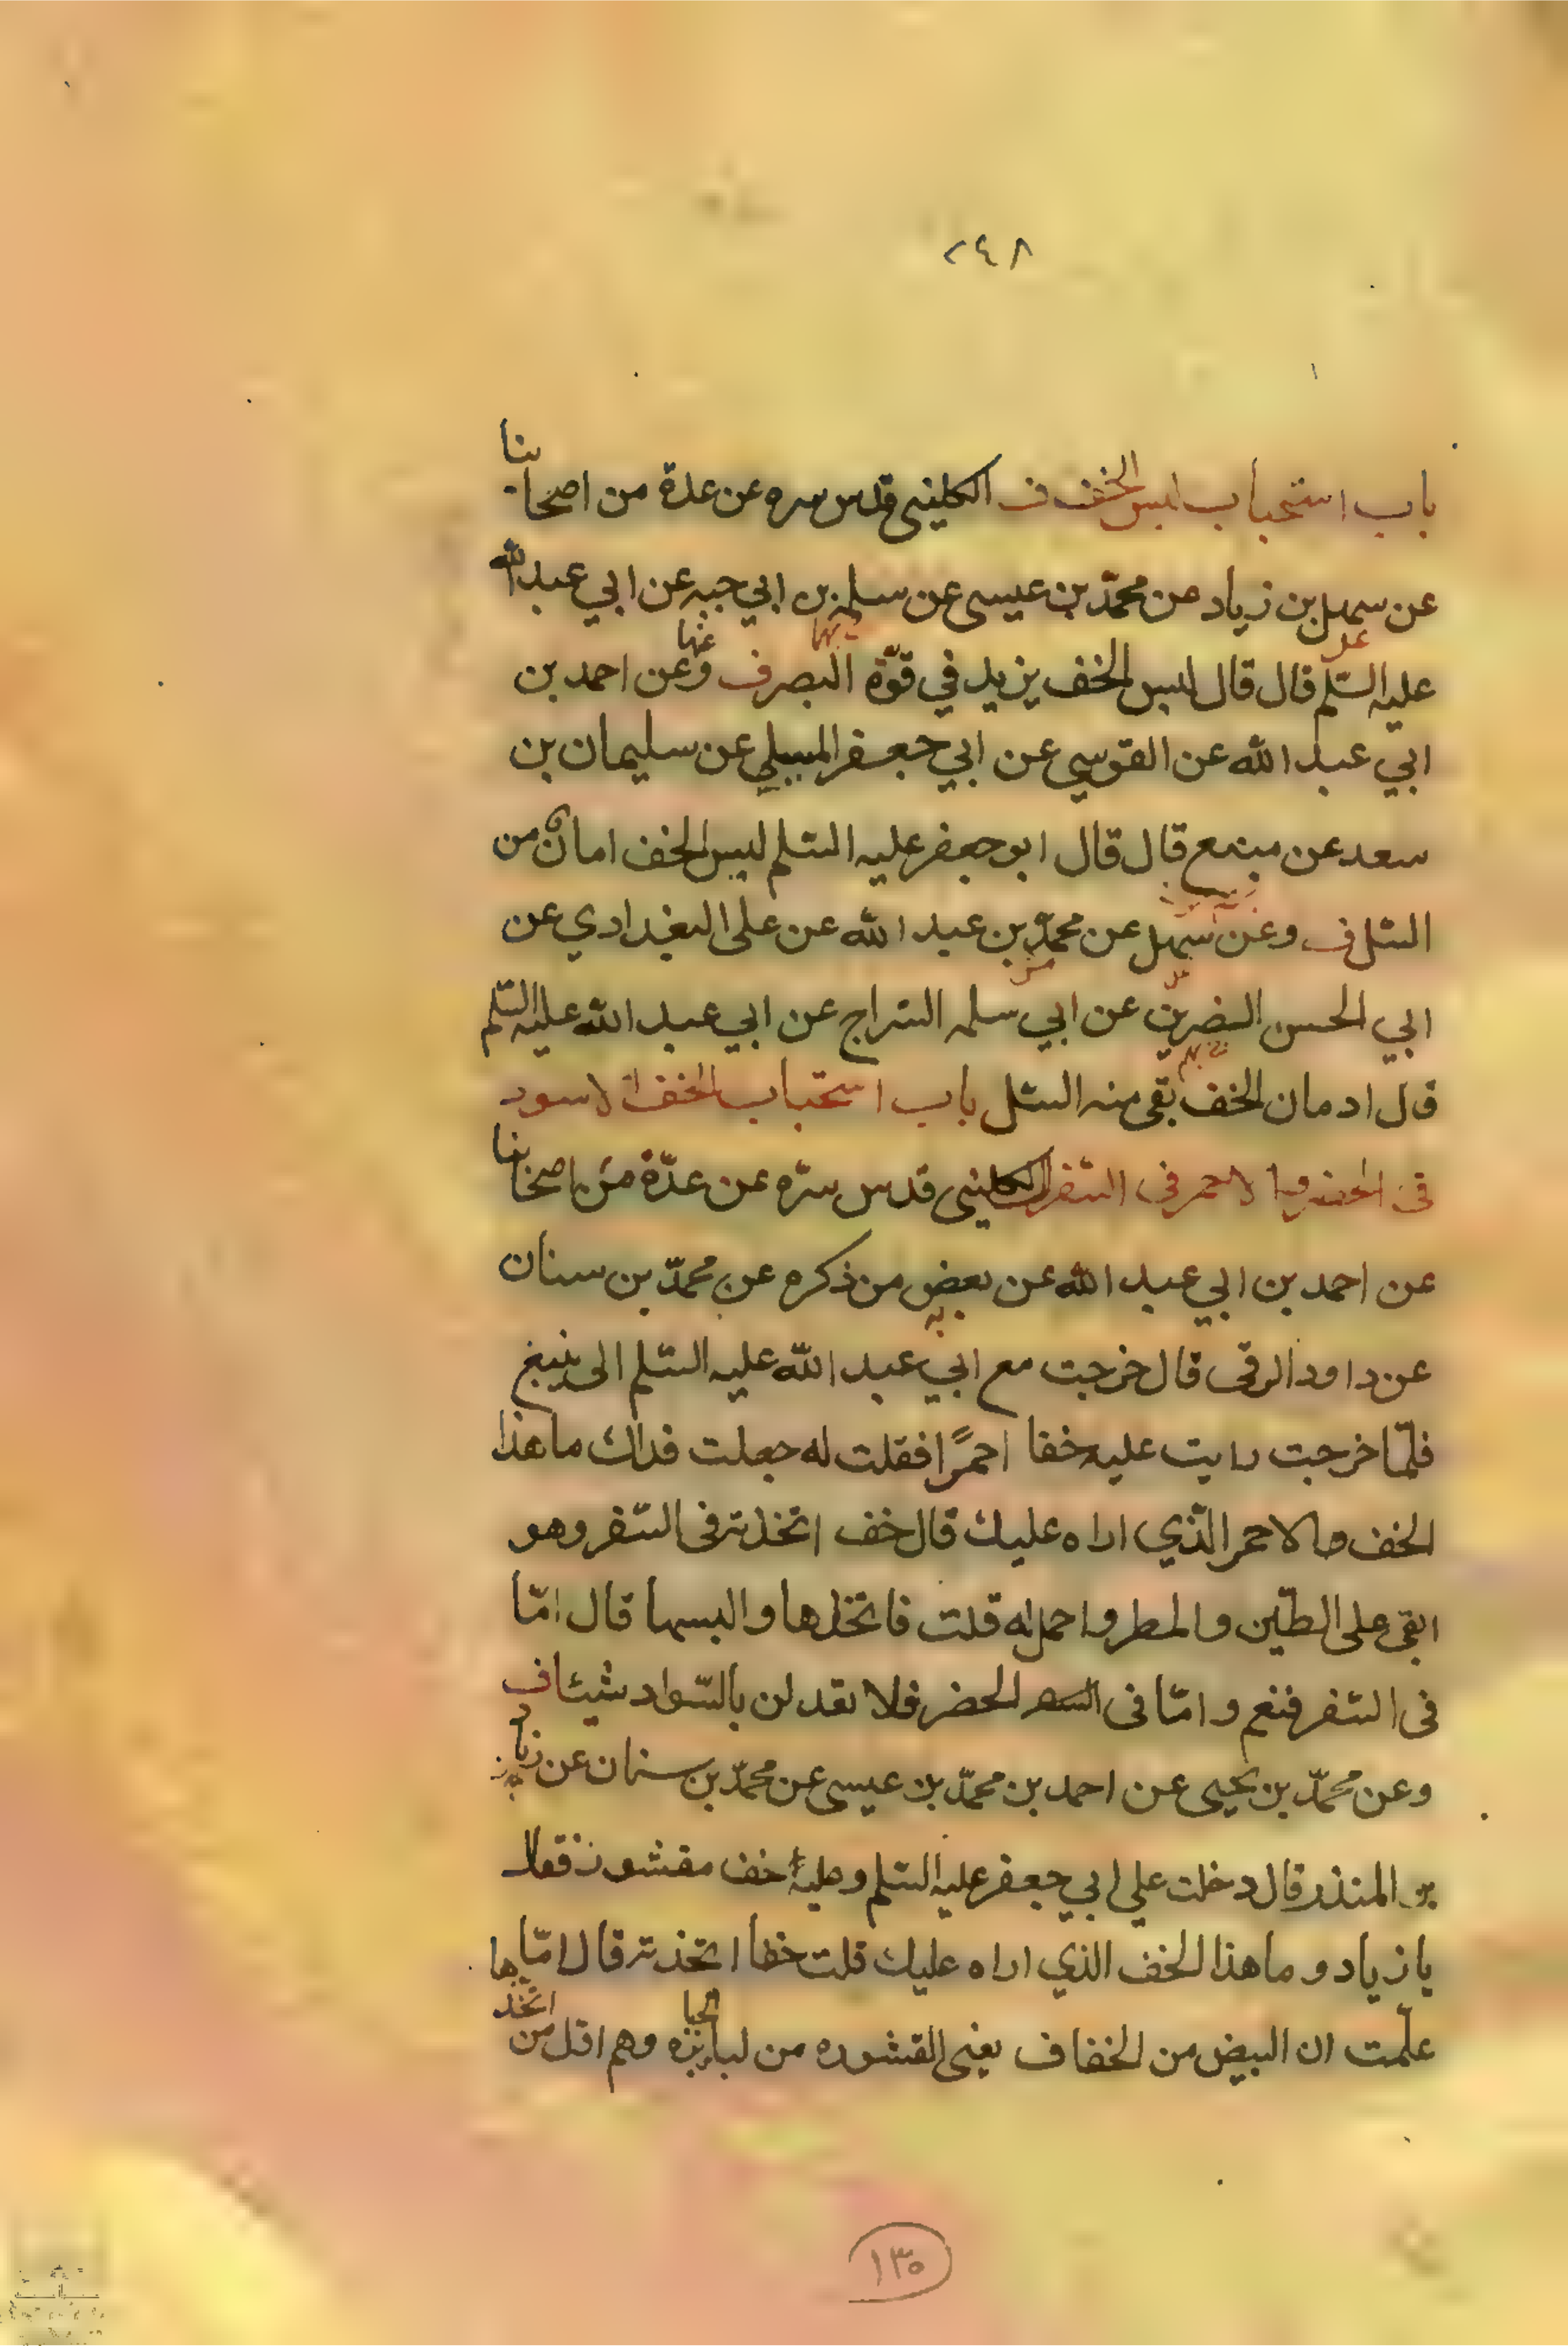 ٢٤٨
باب استحباب لبس الخف ف الكليني قدس سره عن عدة من اصحابنا
عن سهل بن زياد عن محمّد بن عيسى عن سلمه بن ابي حبه عن ابي عبد الله
عليه السّلم قال قال لبس الخف يزيد في قوّة البصر ف وعن احمد بن
ابي عبد الله عن القوسي عن ابي جعفر المسلي عن سليمان بن
سعد عن منيع قال قال ابو جعفر عليه السّلم لبس الخف امان من
السّل ف وعن سهل عن محمّد بن عبد الله عن على البغدادي عن
ابي الحسن الضرير عن ابي سلمه السّراج عن ابي عبد الله عليه السّلم
قال ادمان الخف يقى منه السّل باب استحباب الخف الاسود
فى الحضر والاحمر فى السّفر الكليني قدس سرّه عن عدّة من اصحابنا
عن احمد بن ابي عبد الله عن بعض من ذكره عن محمّد بن سنان
عن داود الرقى قال خرجت مع ابي عبد الله عليه السّلم الى ينبع
فلمّا خرجت رايت عليه خفا احمرًا فقلت له جعلت فداك ما هذا
الخف الاحمر الّذي اراه عليك قال خف اتخذته فى السّفر وهو
ابقى على الطّين والمطر واحمل له قلت فاتخذها والبسها قال امّا
فى السّفر فنعم وامّا فى الحضر فلا تعدلن بالسّواد شيئا ف
وعن محمّد بن يحيى عن احمد بن محمّد بن عيسى عن محمّد بن سنان عن زياد
بن المنذر قال دخلت على ابي جعفر عليه السّلم وعليّ خف مقشور فقال
يا زياد وما هذا الخف الذي اراه عليك قلت خفا اتخذته قال امّا
علمت ان البيض من الخفاف يعنى المقشوره من لباس الجبابره وهم اول من اتخذها
١٣٥